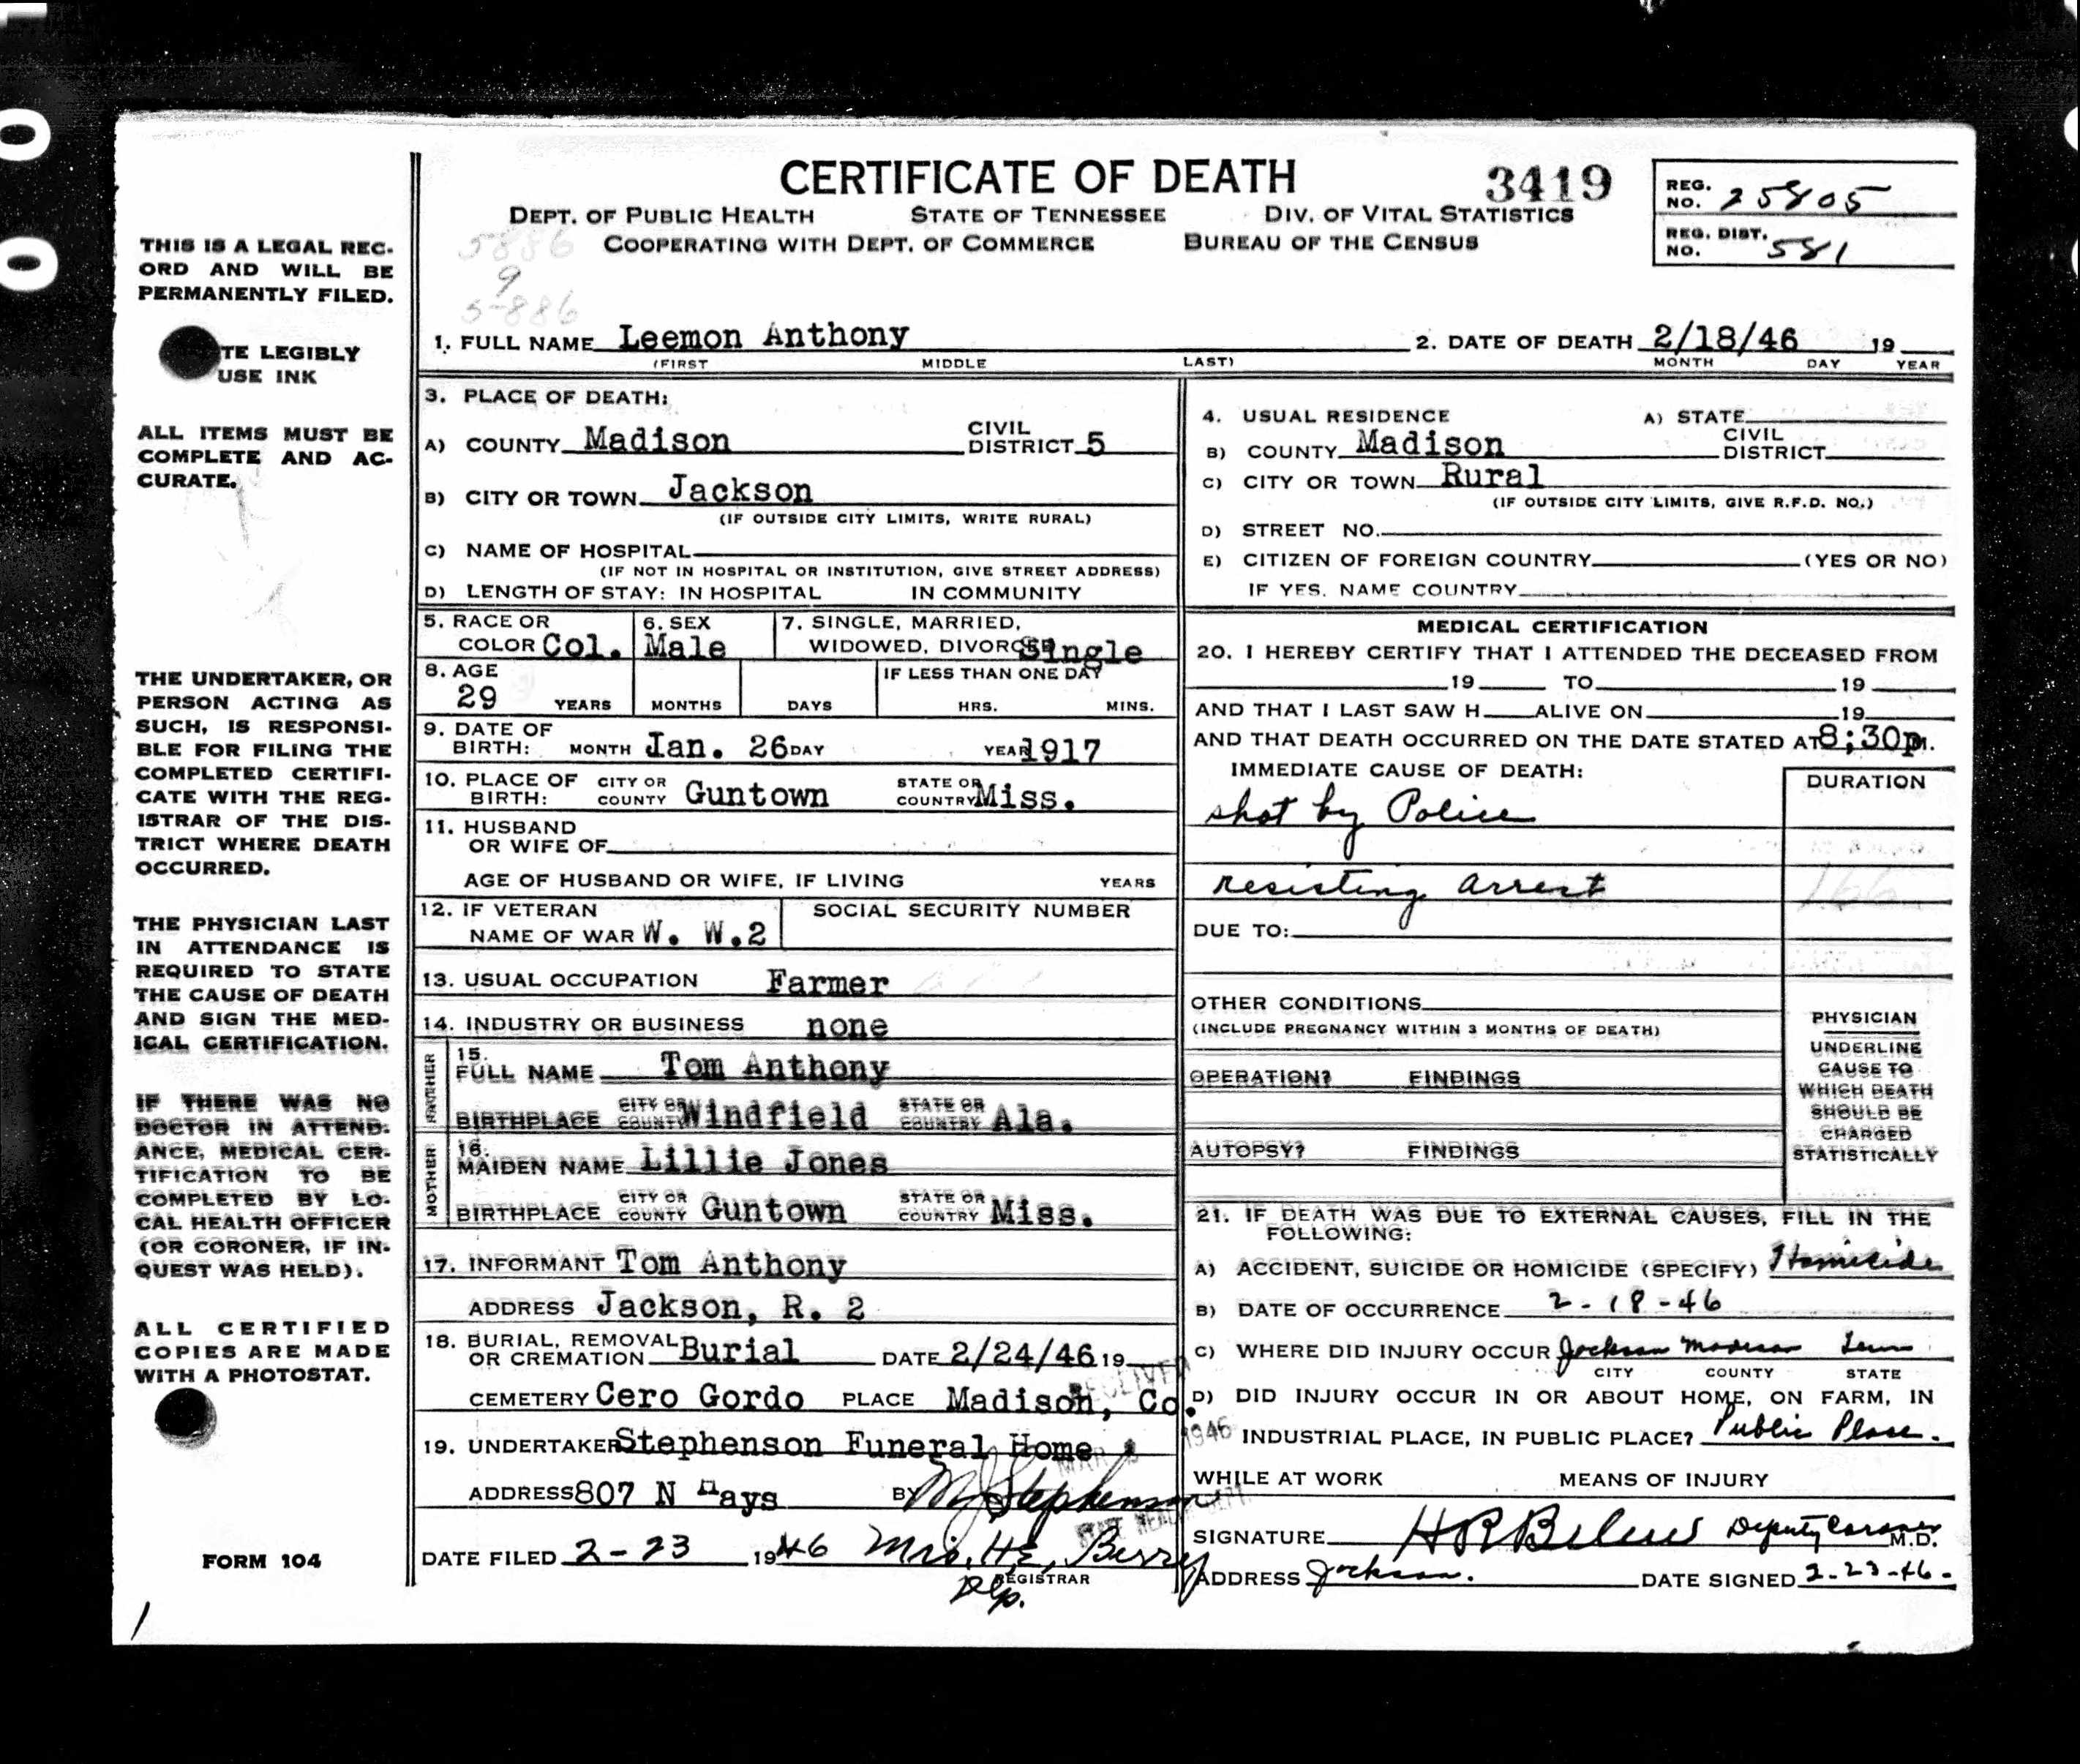 CERTIFICATE OF DEATH
3419
DEPT. OF PUBLIC HEALTH STATE OF TENNESSEE DIV. OF VITAL STATISTICS
COOPERATING WITH DEPT. OF COMMERCE BUREAU OF THE CENSUS
REG. NO. 25805
REG. DIST. NO. 581
5886
9
5-886
THIS IS A LEGAL REC-
ORD AND WILL BE
PERMANENTLY FILED.
TE LEGIBLY
USE INK
ALL ITEMS MUST BE
COMPLETE AND AC-
CURATE.
THE UNDERTAKER, OR
PERSON ACTING AS
SUCH, IS RESPONSI-
BLE FOR FILING THE
COMPLETED CERTIFI-
CATE WITH THE REG-
ISTRAR OF THE DIS-
TRICT WHERE DEATH
OCCURRED.
THE PHYSICIAN LAST
IN ATTENDANCE IS
REQUIRED TO STATE
THE CAUSE OF DEATH
AND SIGN THE MED-
ICAL CERTIFICATION.
IF THERE WAS NO
DOCTOR IN ATTEND-
ANCE, MEDICAL CER-
TIFICATION TO BE
COMPLETED BY LO-
CAL HEALTH OFFICER
(OR CORONER, IF IN-
QUEST WAS HELD).
ALL CERTIFIED
COPIES ARE MADE
WITH A PHOTOSTAT.
FORM 104
1. FULL NAME Leemon Anthony 2. DATE OF DEATH 2/18/46 19
(FIRST MIDDLE LAST) MONTH DAY YEAR
3. PLACE OF DEATH:
A) COUNTY Madison CIVIL DISTRICT 5
B) CITY OR TOWN Jackson
(IF OUTSIDE CITY LIMITS, WRITE RURAL)
C) NAME OF HOSPITAL
(IF NOT IN HOSPITAL OR INSTITUTION, GIVE STREET ADDRESS)
D) LENGTH OF STAY: IN HOSPITAL IN COMMUNITY
5. RACE OR COLOR Col. 6. SEX Male 7. SINGLE, MARRIED, WIDOWED, DIVORCED Single
8. AGE 29 YEARS MONTHS DAYS IF LESS THAN ONE DAY HRS. MINS.
9. DATE OF BIRTH: MONTH Jan. 26 DAY YEAR 1917
10. PLACE OF BIRTH: CITY OR COUNTY Guntown STATE OR COUNTRY Miss.
11. HUSBAND OR WIFE OF
AGE OF HUSBAND OR WIFE, IF LIVING YEARS
12. IF VETERAN NAME OF WAR W. W.2 SOCIAL SECURITY NUMBER
13. USUAL OCCUPATION Farmer
14. INDUSTRY OR BUSINESS none
FATHER
15. FULL NAME Tom Anthony
BIRTHPLACE CITY OR COUNTY Windfield STATE OR COUNTRY Ala.
MOTHER
16. MAIDEN NAME Lillie Jones
BIRTHPLACE CITY OR COUNTY Guntown STATE OR COUNTRY Miss.
17. INFORMANT Tom Anthony
ADDRESS Jackson, R. 2
18. BURIAL, REMOVAL OR CREMATION Burial DATE 2/24/46 19
CEMETERY Cero Gordo PLACE Madison, Co.
19. UNDERTAKER Stephenson Funeral Home
ADDRESS 807 N Hays BY M J Stephenson
DATE FILED 2-23 1946 Mrs. H.E. Berry
REGISTRAR
Dep.
4. USUAL RESIDENCE A) STATE
B) COUNTY Madison CIVIL DISTRICT
C) CITY OR TOWN Rural
(IF OUTSIDE CITY LIMITS, GIVE R.F.D. NO.)
D) STREET NO.
E) CITIZEN OF FOREIGN COUNTRY (YES OR NO)
IF YES, NAME COUNTRY
MEDICAL CERTIFICATION
20. I HEREBY CERTIFY THAT I ATTENDED THE DECEASED FROM
19 TO 19
AND THAT I LAST SAW H ALIVE ON 19
AND THAT DEATH OCCURRED ON THE DATE STATED AT 8;30p M.
IMMEDIATE CAUSE OF DEATH: DURATION
shot by Police
resisting arrest
166
DUE TO:
OTHER CONDITIONS
(INCLUDE PREGNANCY WITHIN 3 MONTHS OF DEATH)
OPERATION? FINDINGS
AUTOPSY? FINDINGS
PHYSICIAN
UNDERLINE
CAUSE TO
WHICH DEATH
SHOULD BE
CHARGED
STATISTICALLY
21. IF DEATH WAS DUE TO EXTERNAL CAUSES, FILL IN THE
FOLLOWING:
A) ACCIDENT, SUICIDE OR HOMICIDE (SPECIFY) Homicide
B) DATE OF OCCURRENCE 2-18-46
C) WHERE DID INJURY OCCUR Jackson Madison Tenn
CITY COUNTY STATE
D) DID INJURY OCCUR IN OR ABOUT HOME, ON FARM, IN
INDUSTRIAL PLACE, IN PUBLIC PLACE? Public Place.
WHILE AT WORK MEANS OF INJURY
SIGNATURE Deputy Coroner M.D.
ADDRESS Jackson. DATE SIGNED 2-23-46-
RECEIVED
MAR 1946